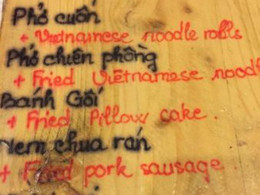 Phở cuốn
+ Vietnamese noodle rolls
Phở chiên phồng
+ Fried Vietnamese nood
Bánh Gối
+ Fried Pillow cake.
Nem chua rán
+ Fried pork sausage